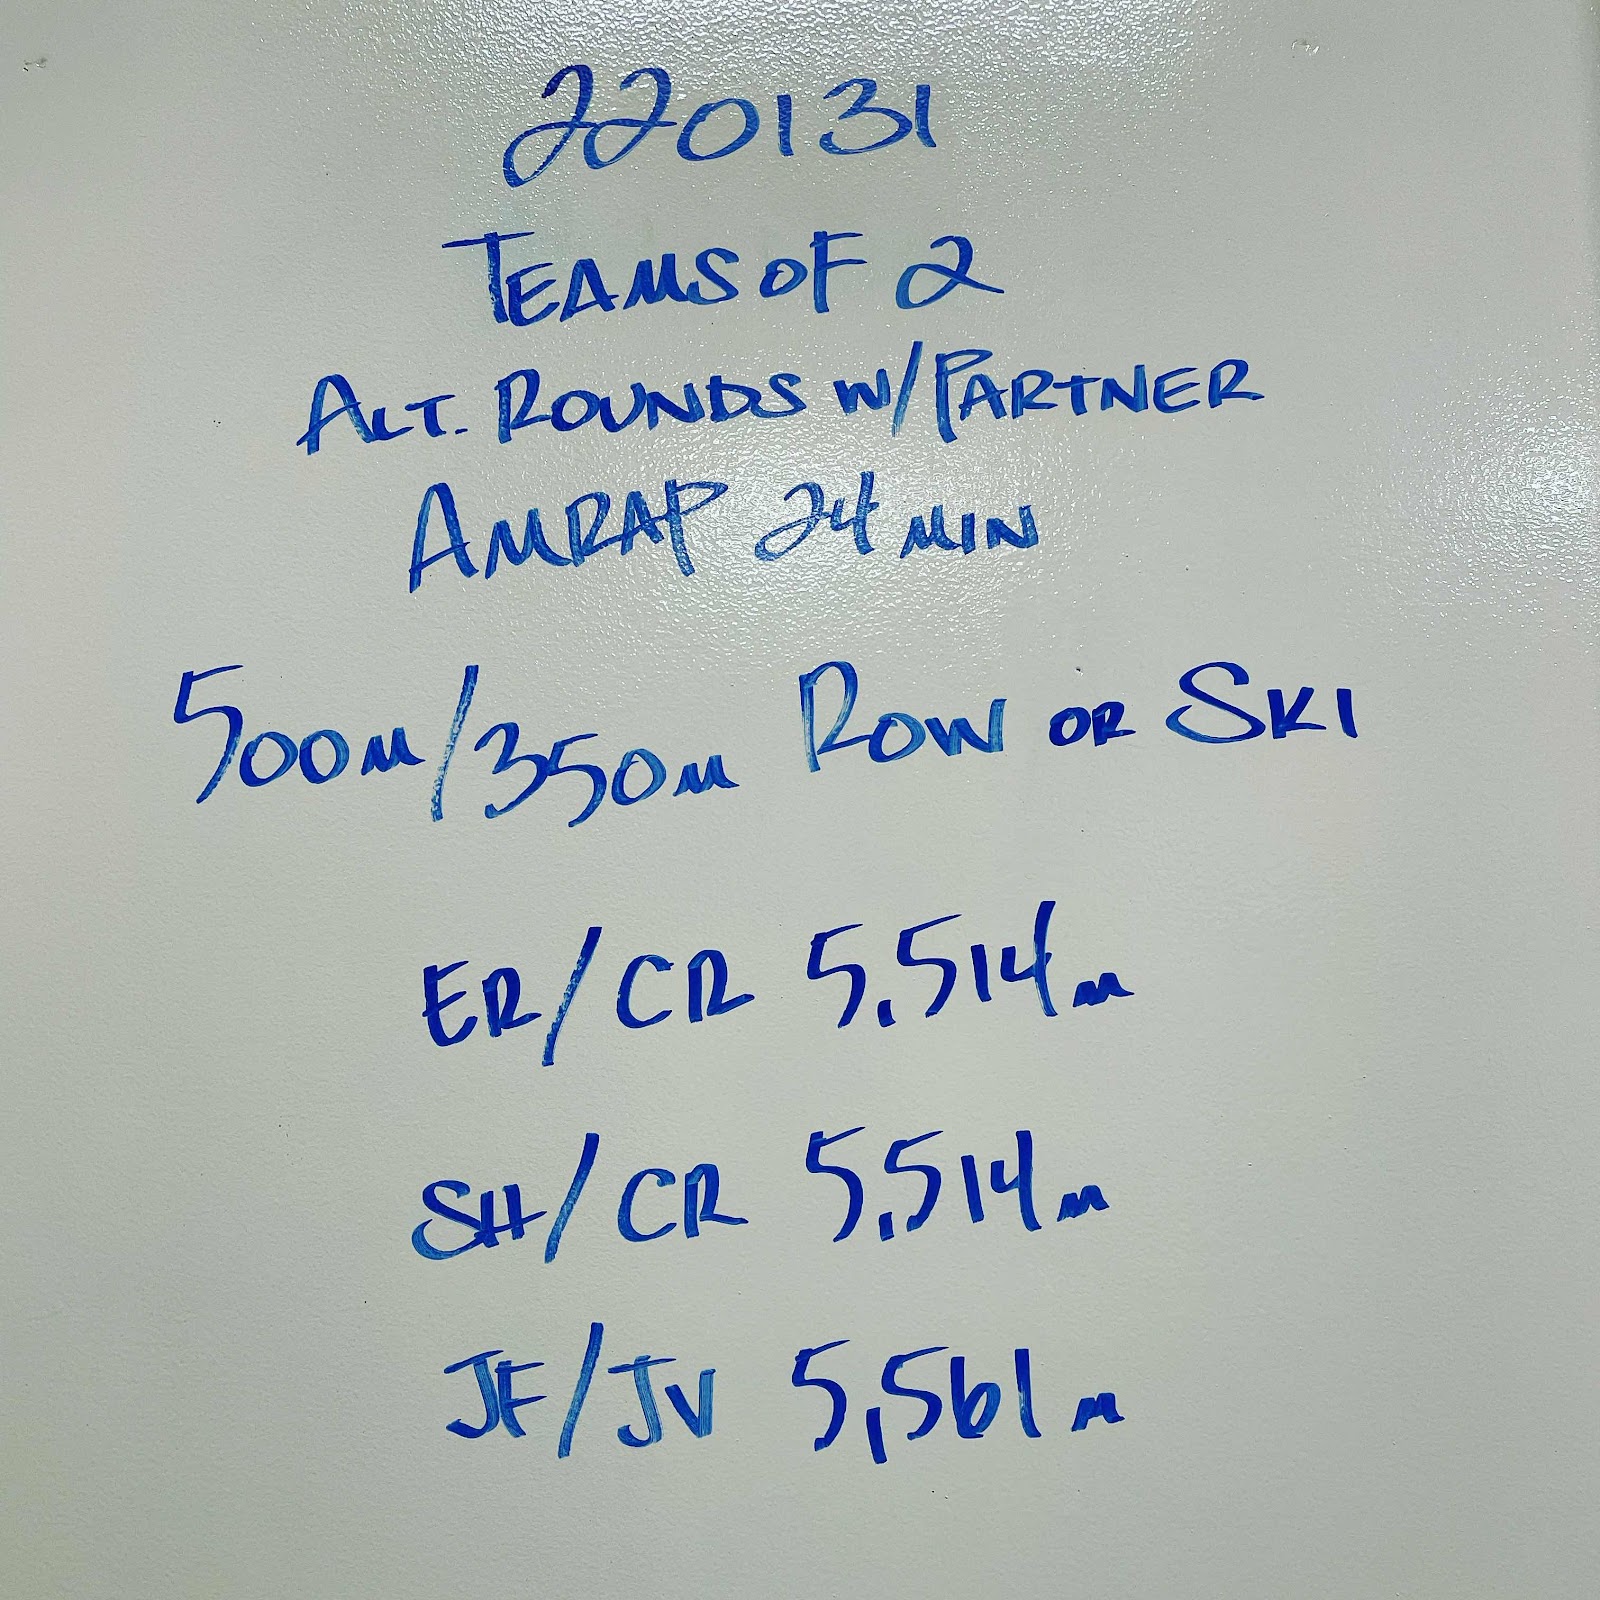 220131
TEAMS OF 2
ALT. ROUNDS W/PARTNER
AMRAP 24 MIN
500M/350M ROW OR SKI
ER/CR 5,514M
SH/CR 5,514M
JF/JV 5,561M